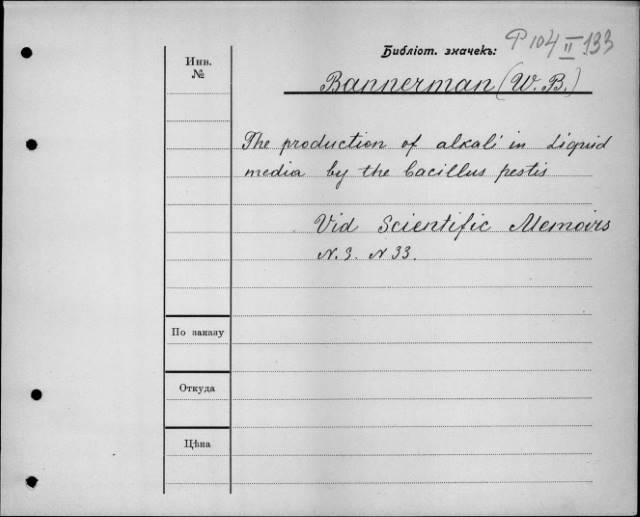 Библіот. значекъ: P 104 II/II 133
Инв.
№
Bannerman (W. B.)
The production of alkali in liquid
media by the bacillus pestis
Vid Scientific Memoirs
N. 3. N 33.
По заказу
Откуда
Цѣна